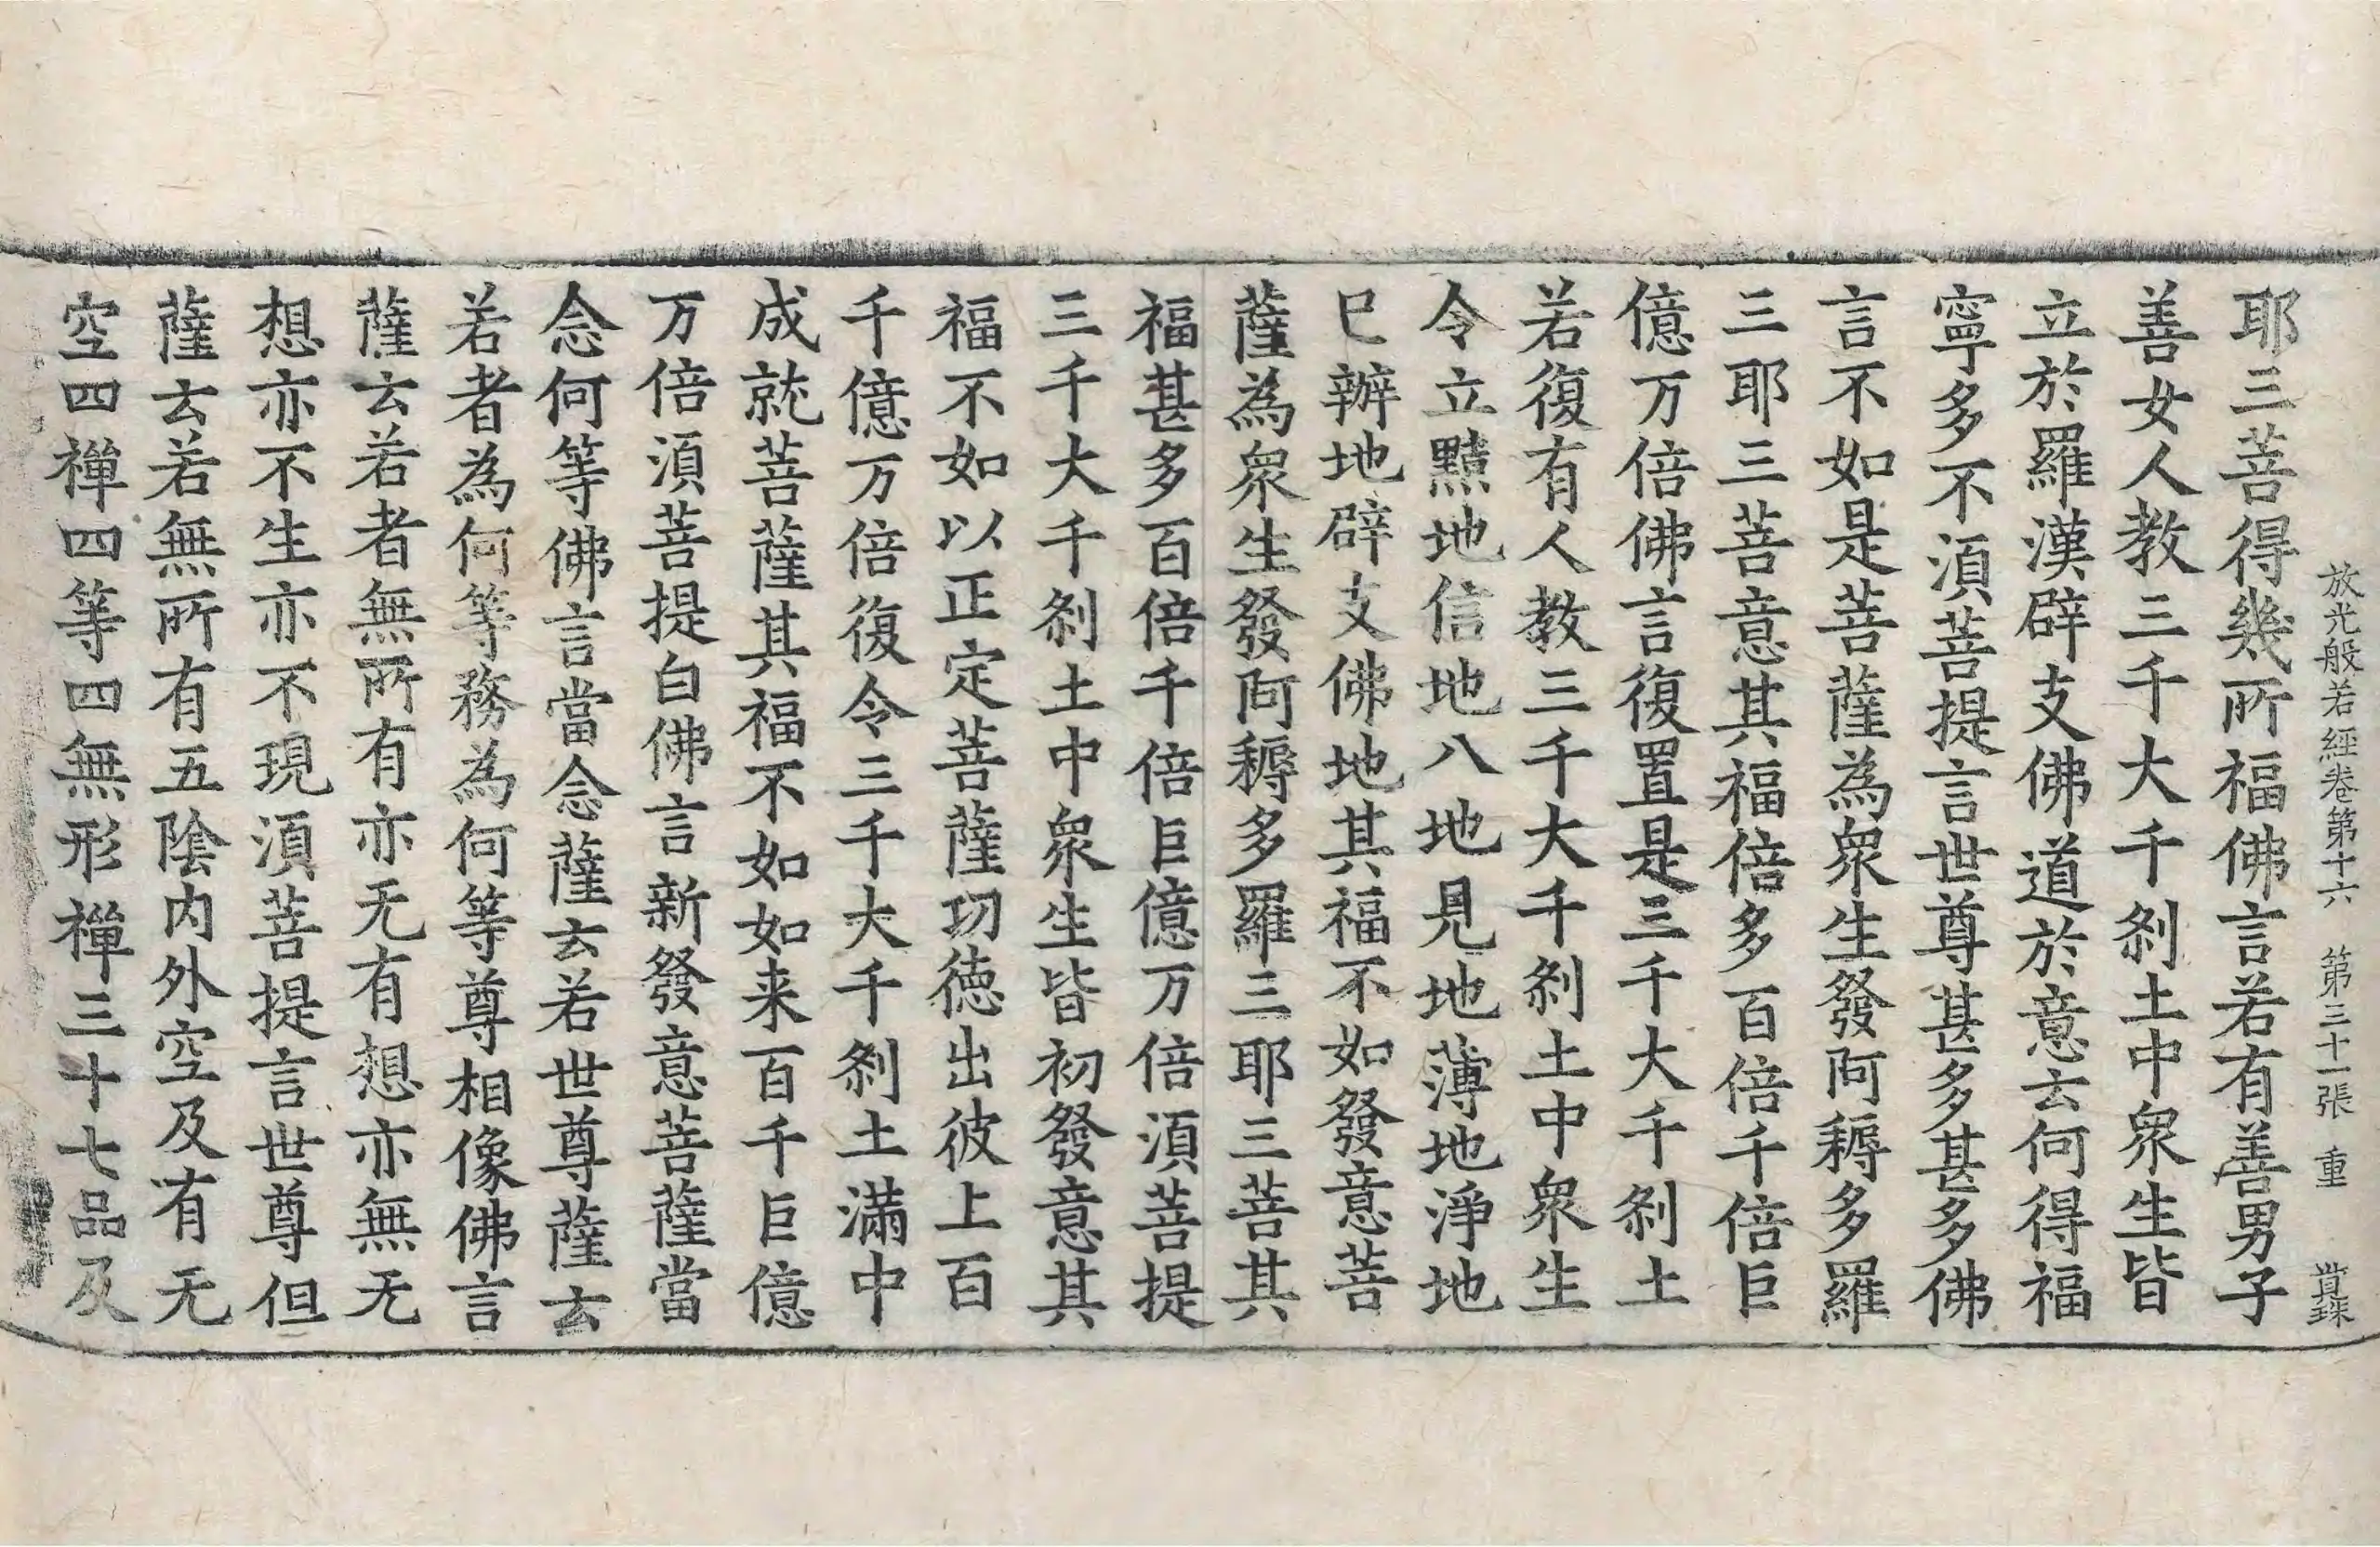 放光般若經卷第十六　第三十一張　重
耶三菩得幾所福佛言若有善男子
善女人教三千大千刹土中衆生皆
立於羅漢辟支佛道於意云何得福
寧多不須菩提言世尊甚多甚多佛
言不如是菩薩為衆生發阿耨多羅
三耶三菩意其福倍多百倍千倍巨
億万倍佛言復置是三千大千刹土
若復有人教三千大千刹土中衆生
令立黠地信地八地見地薄地淨地
已辦地辟支佛地其福不如發意菩
薩為衆生發阿耨多羅三耶三菩其
福甚多百倍千倍巨億万倍須菩提
三千大千刹土中衆生皆初發意其
福不如以正定菩薩功徳出彼上百
千億万倍復令三千大千刹土滿中
成就菩薩其福不如如来百千巨億
万倍須菩提白佛言新發意菩薩當
念何等佛言當念薩云若世尊薩云
若者為何等務為何等尊相像佛言
薩云若者無所有亦无有想亦無无
想亦不生亦不現須菩提言世尊但
薩云若無所有五陰内外空及有无
空四禪四等四無形禪三十七品及